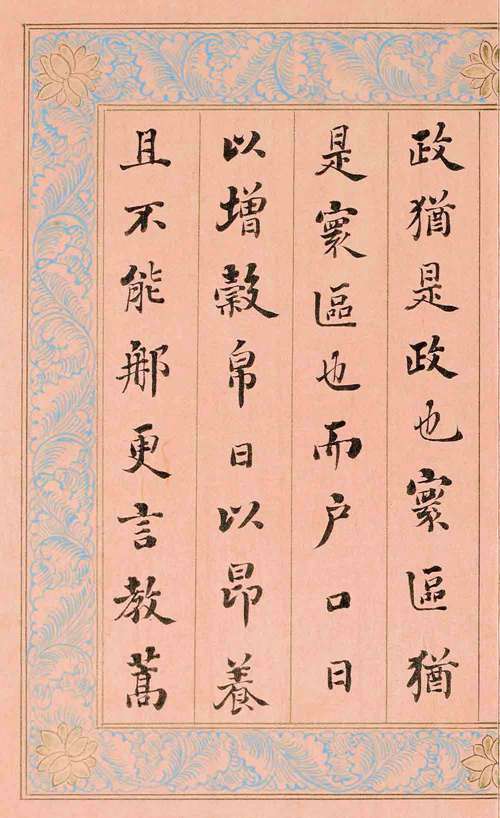 政猶是政也寰區猶
是寰區也而户口日
以增穀帛日以昂養
且不能那更言教蒿